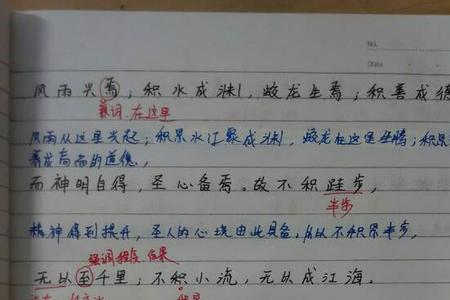 No.
Date
风雨兴焉；积水成渊，蛟龙生焉；积善成德
兼词 在这里
风雨从这里兴起；积累水汇聚成渊，蛟龙在这里生腾；积累
养成高尚的道德，
而神明自得，圣心备焉。故不积跬步，
半步
精神得到提升，圣人的心境由此具备，所以不积累半步，
强调程度、结果
无以至千里；不积小流，无以成江海。